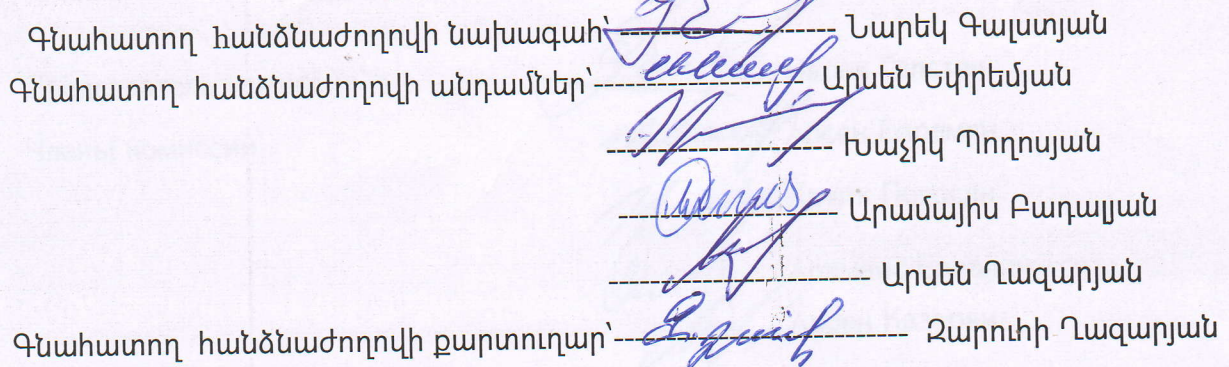 Գնահատող հանձնաժողովի նախագահ՝------------------- Նարեկ Գալստյան
Գնահատող հանձնաժողովի անդամներ՝------------------- Արսեն Եփրեմյան
-------------------- Խաչիկ Պողոսյան
-------------------- Արամայիս Բադալյան
------------------------ Արսեն Ղազարյան
Գնահատող հանձնաժողովի քարտուղար՝--------------------------- Զարուհի Ղազարյան